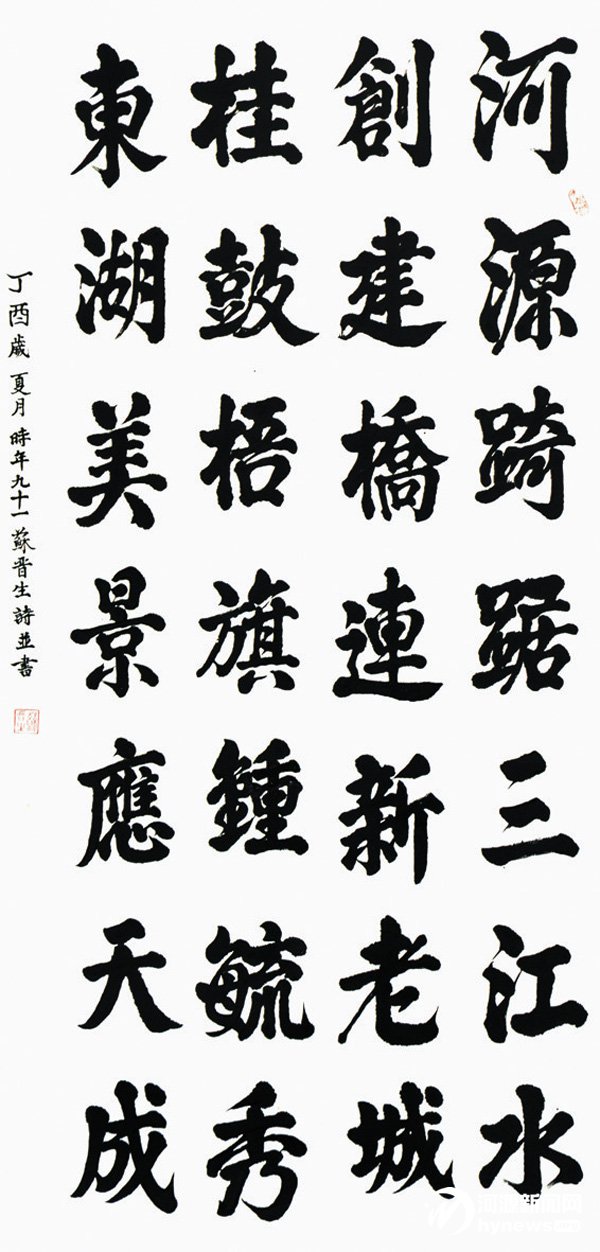 河源踦踞三江水
創建橋連新老城
桂鼓梧旗鍾毓秀
東湖美景應天成
丁酉歲夏月時年九十一蘇晋生詩並書
河源新闻网
hynews